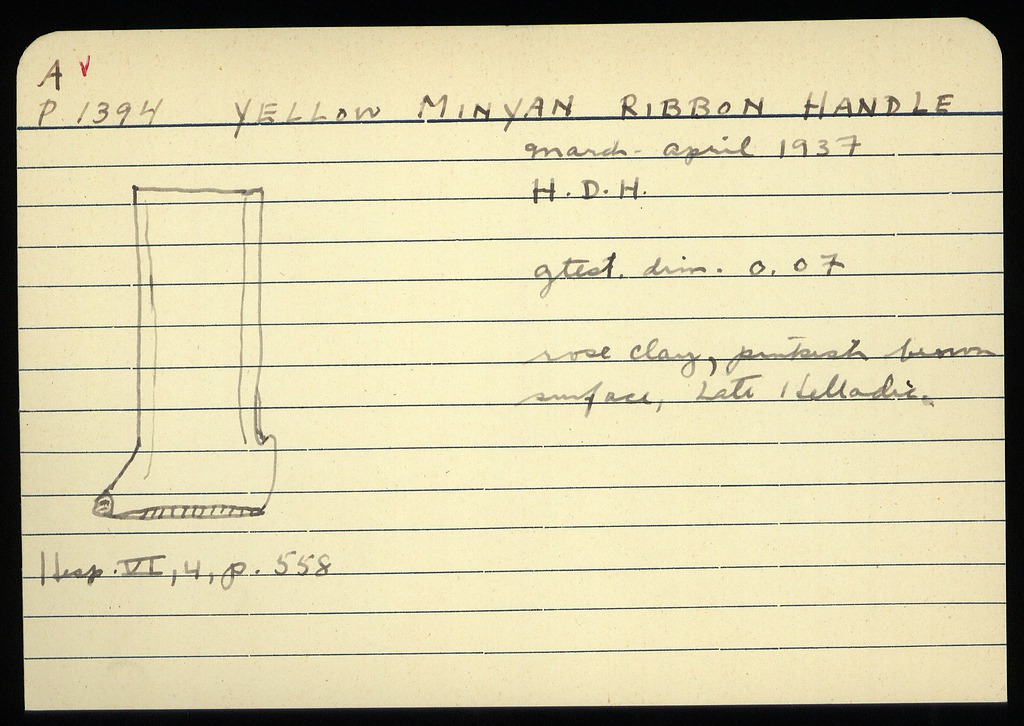 A ✓
P 1394 YELLOW MINYAN RIBBON HANDLE
march - april 1937
H.D.H.
gtest. dim. 0.07
rose clay, pinkish brown
surface, Late Helladic.
Hesp. VI, 4, p. 558